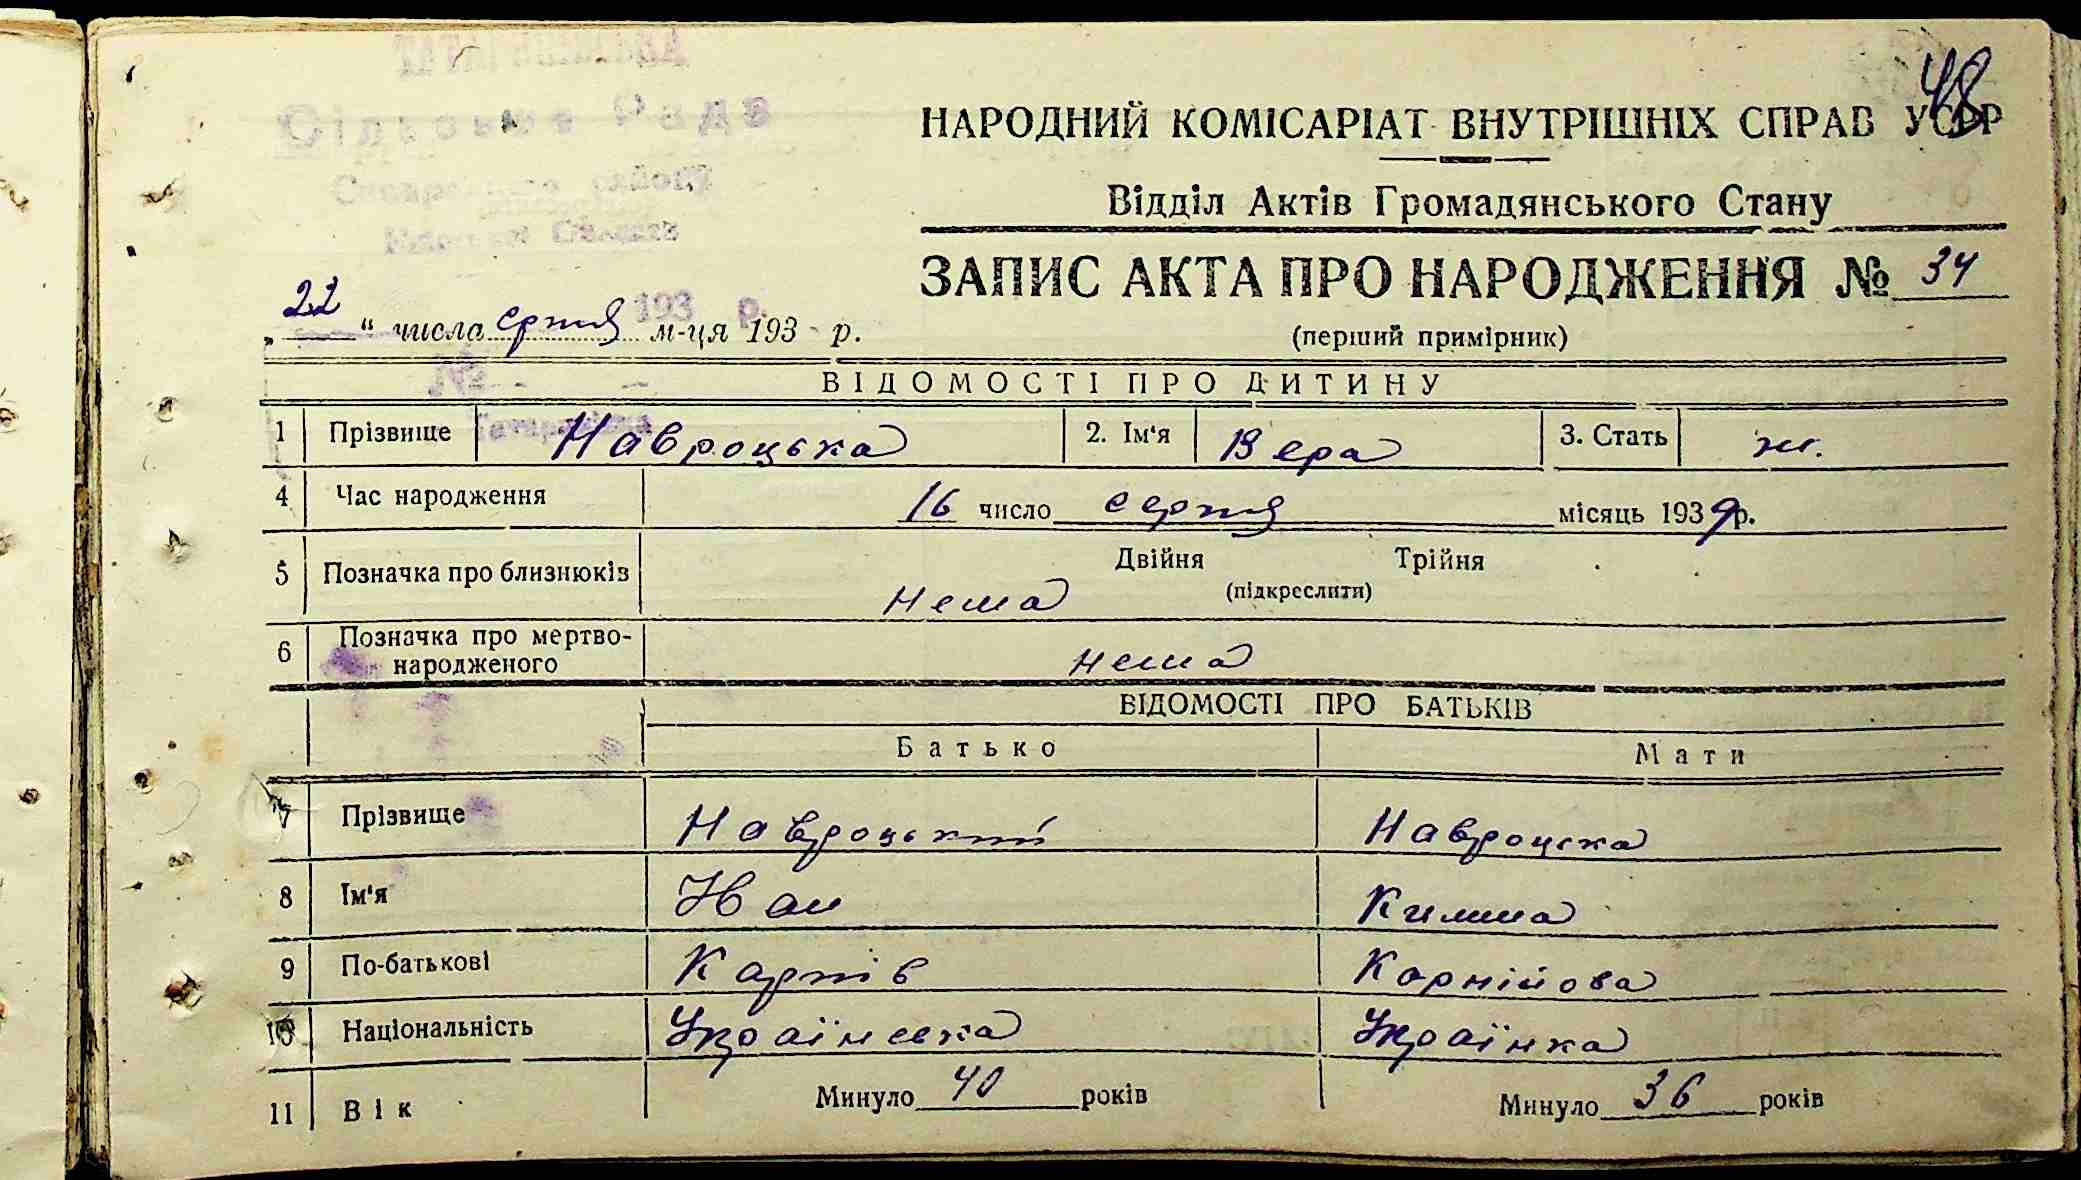 48
Сільська Рада
НАРОДНИЙ КОМІСАРІАТ ВНУТРІШНІХ СПРАВ УСРР
Відділ Актів Громадянського Стану
ЗАПИС АКТА ПРО НАРОДЖЕННЯ № 34
(перший примірник)
193 р.
„ 22 “ числа серпня м-ця 193 р.
№
ВІДОМОСТІ ПРО ДИТИНУ
1 Прізвище Навроцька 2. Ім'я Вера 3. Стать ж.
4 Час народження 16 число серпня місяць 1939 р.
5 Позначка про близнюків нема Двійня Трійня
(підкреслити)
6 Позначка про мертво-
народженого нема
ВІДОМОСТІ ПРО БАТЬКІВ
Батько Мати
7 Прізвище Навроцький Навроцка
8 Ім'я Іван Килина
9 По-батькові Карпів Корнійова
10 Національність Українська Українка
11 Вік Минуло 40 років Минуло 36 років